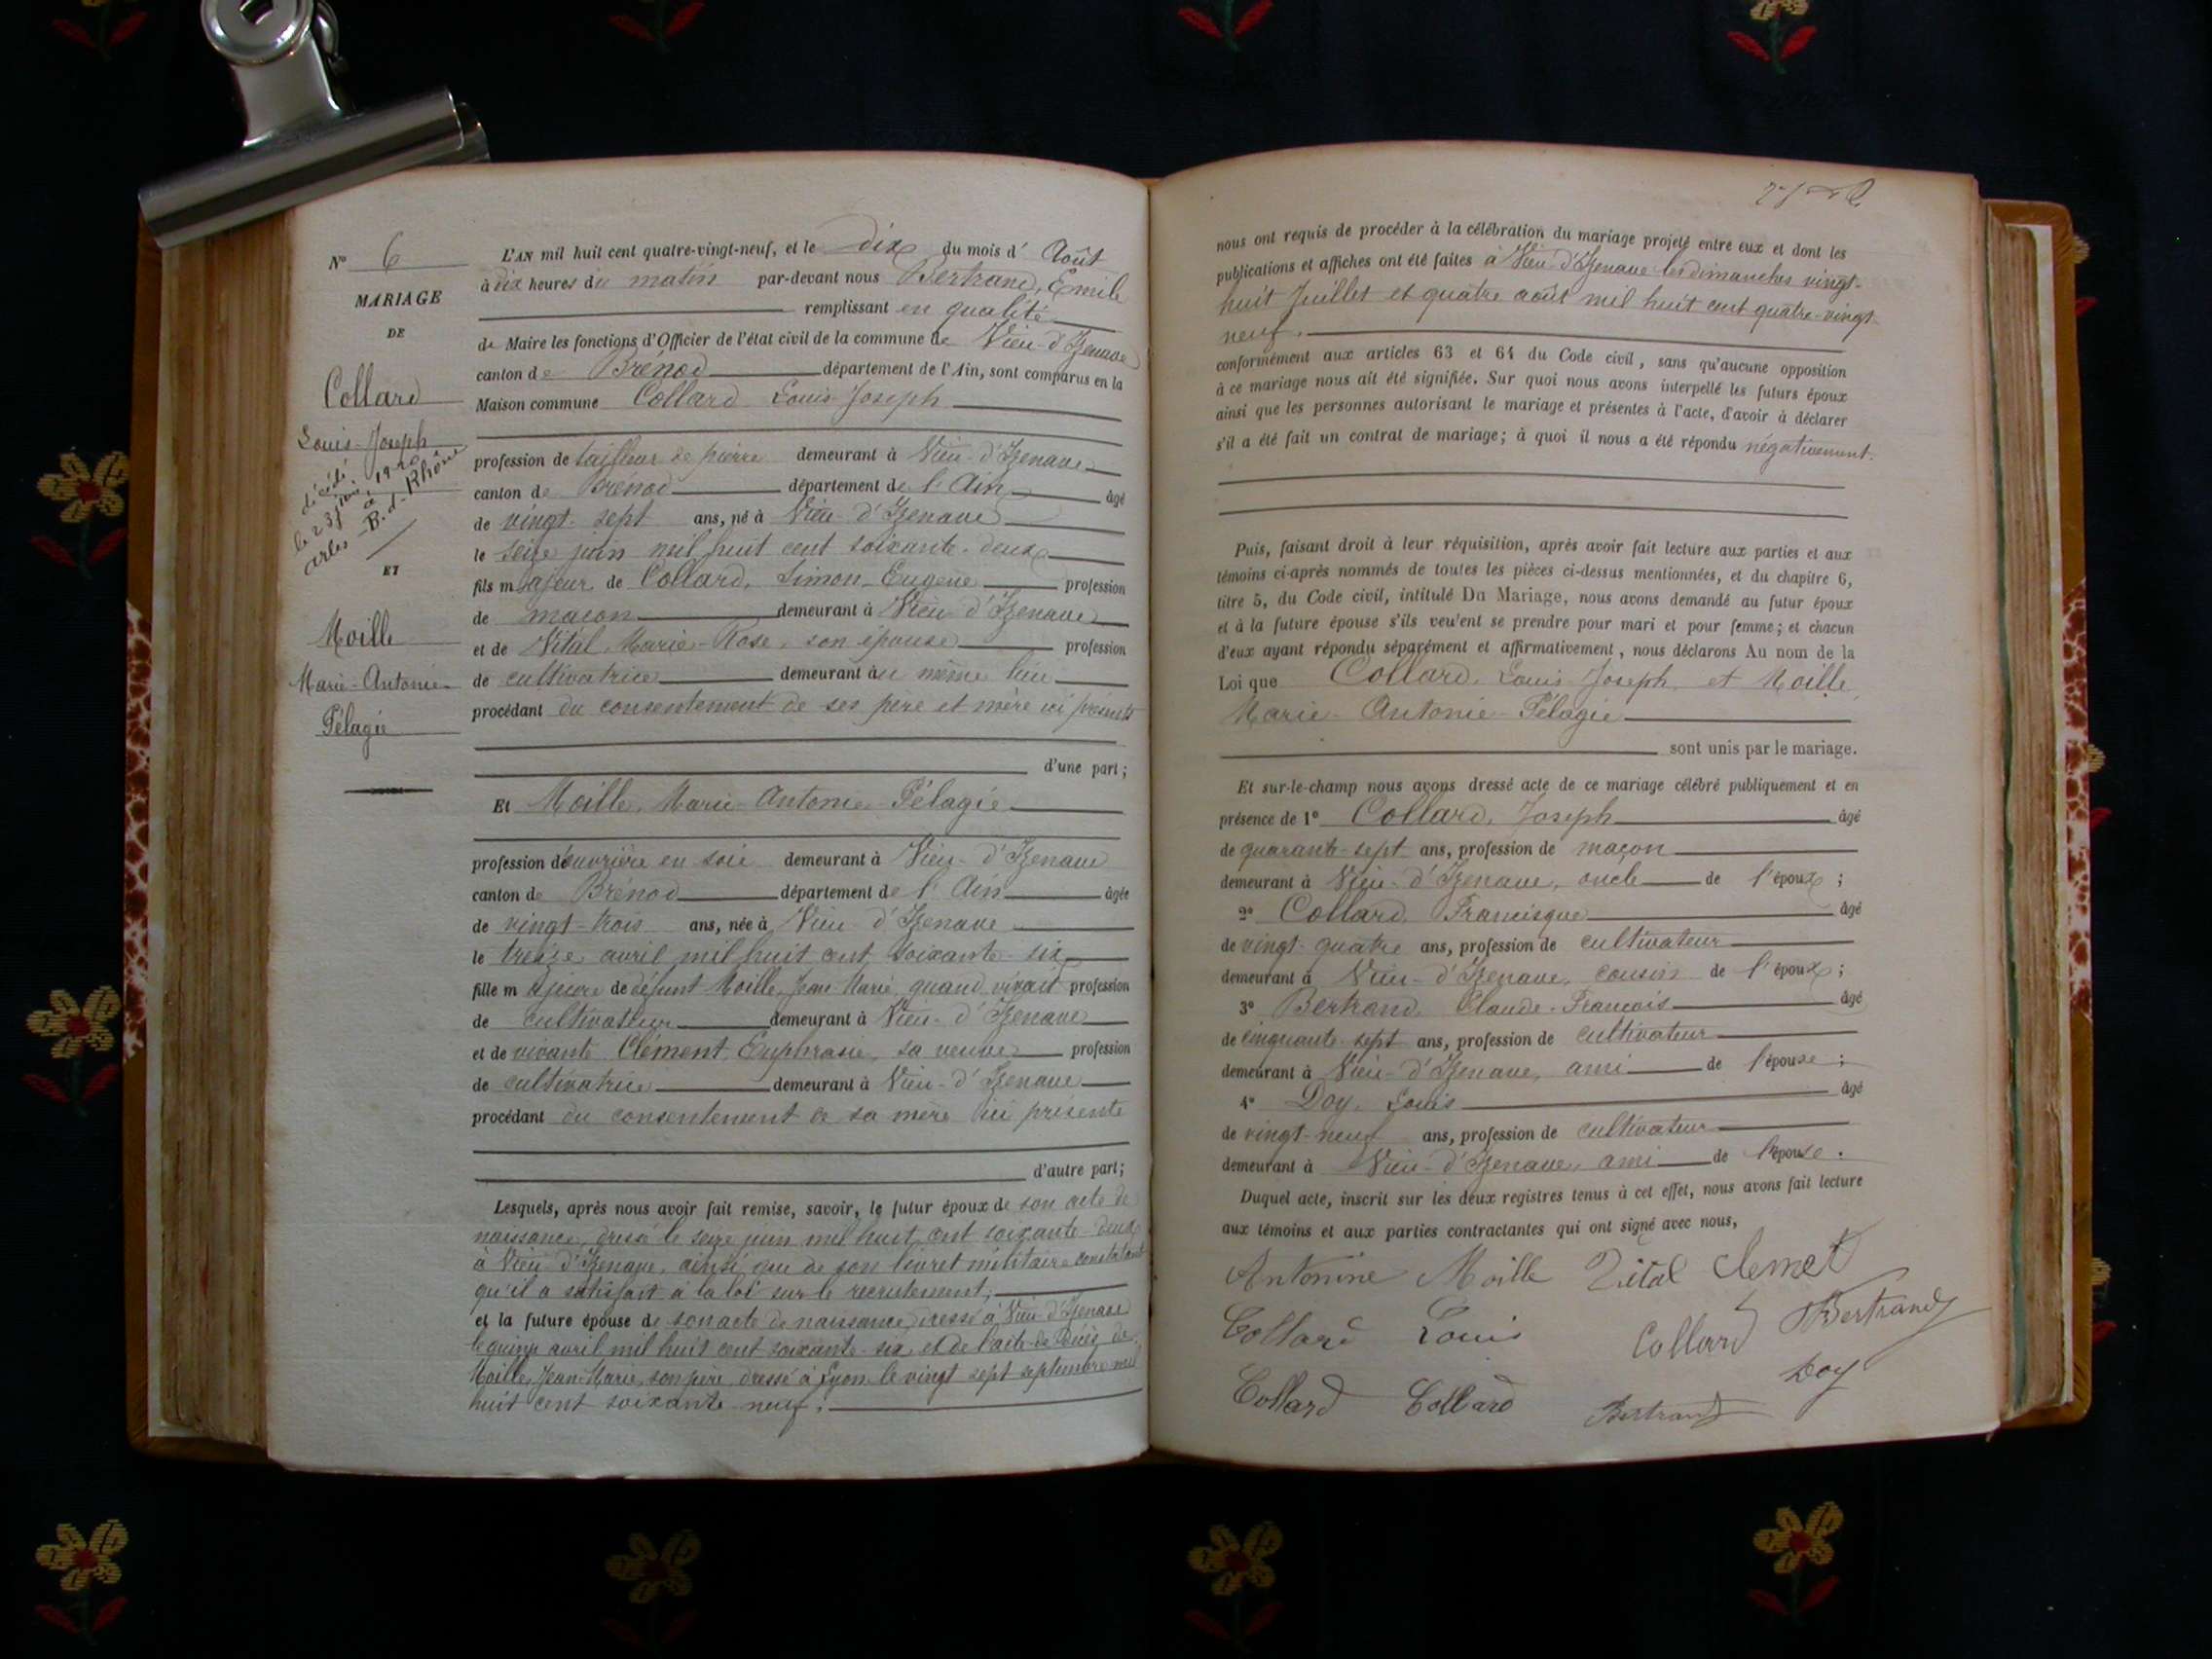 N° 6
MARIAGE
DE
Collard
Louis-Joseph
décédé
le 23 1920
à
arles B.-d-Rhône
ET
Moille
Marie-Antonie
Pélagie
L'AN mil huit cent quatre-vingt-neuf, et le dix du mois d' Août
à dix heures du matin par-devant nous Bertrand, Emile
remplissant en qualité
de Maire les fonctions d'Officier de l'état civil de la commune de Vieu-d'Izenave
canton de Brénod département de l'Ain, sont comparus en la
Maison commune Collard Louis-Joseph
profession de tailleur de pierre demeurant à Vieu-d'Izenave
canton de Brénod département de l'Ain âgé
de vingt-sept ans, né à Vieu-d'Izenave
le seize juin mil huit cent soixante-deux
fils majeur de Collard, Simon-Eugène profession
de maçon demeurant à Vieu-d'Izenave
et de Vital, Marie-Rose, son épouse profession
de cultivatrice demeurant au même lieu
procédant du consentement de ses père et mère ici présents
d'une part;
Et Moille, Marie-Antonie-Pélagie
profession d'ouvrière en soie demeurant à Vieu-d'Izenave
canton de Brénod département de l'Ain âgée
de vingt-trois ans, née à Vieu-d'Izenave
le treize avril mil huit cent soixante-six
fille majeure de défunt Moille, Jean-Marie, quand vivait profession
de cultivateur demeurant à Vieu-d'Izenave
et de vivante Clément, Euphrasie, sa veuve profession
de cultivatrice demeurant à Vieu-d'Izenave
procédant du consentement de sa mère ici présente
d'autre part;
Lesquels, après nous avoir fait remise, savoir, le futur époux de son acte de
naissance, dressé le seize juin mil huit cent soixante-deux
à Vieu-d'Izenave, ainsi que de son livret militaire constatant
qu'il a satisfait à la loi sur le recrutement;
et la future épouse de son acte de naissance, dressé à Vieu-d'Izenave
le quinze avril mil huit cent soixante-six et de l'acte de décès de
Moille, Jean-Marie, son père, dressé à Lyon le vingt sept septembre mil
huit cent soixante-neuf.
nous ont requis de procéder à la célébration du mariage projeté entre eux et dont les
publications et affiches ont été faites à Vieu-d'Izenave les dimanches vingt-
huit Juillet et quatre août mil huit cent quatre-vingt-
neuf.
conformément aux articles 63 et 64 du Code civil, sans qu'aucune opposition
à ce mariage nous ait été signifiée. Sur quoi nous avons interpellé les futurs époux
ainsi que les personnes autorisant le mariage et présentes à l'acte, d'avoir à déclarer
s'il a été fait un contrat de mariage; à quoi il nous a été répondu négativement.
Puis, faisant droit à leur réquisition, après avoir fait lecture aux parties et aux
témoins ci-après nommés de toutes les pièces ci-dessus mentionnées, et du chapitre 6,
titre 5, du Code civil, intitulé Du Mariage, nous avons demandé au futur époux
et à la future épouse s'ils veulent se prendre pour mari et pour femme; et chacun
d'eux ayant répondu séparément et affirmativement, nous déclarons Au nom de la
Loi que Collard, Louis-Joseph et Moille,
Marie-Antonie-Pélagie
sont unis par le mariage.
Et sur-le-champ nous avons dressé acte de ce mariage célébré publiquement et en
présence de 1° Collard, Joseph âgé
de quarante-sept ans, profession de maçon
demeurant à Vieu-d'Izenave, oncle de l'époux;
2° Collard, Francisque âgé
de vingt-quatre ans, profession de cultivateur
demeurant à Vieu-d'Izenave, cousin de l'époux;
3° Bertrand, Claude-François âgé
de cinquante-sept ans, profession de cultivateur
demeurant à Vieu-d'Izenave, ami de l'épouse;
4° Doy, Louis âgé
de vingt-neuf ans, profession de cultivateur
demeurant à Vieu-d'Izenave, ami de l'épouse.
Duquel acte, inscrit sur les deux registres tenus à cet effet, nous avons fait lecture
aux témoins et aux parties contractantes qui ont signé avec nous,
Antonine Moille Vital Clemet
Collard Louis Collard Bertrand
Doy
Collard Collard Bertrand